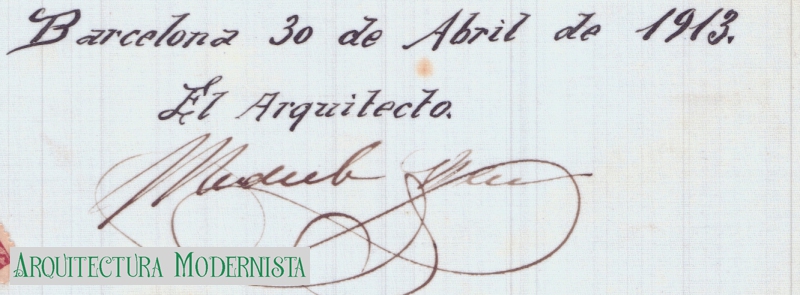 Barcelona 30 de Abril de 1913.
El Arquitecto.
Arquitectura Modernista